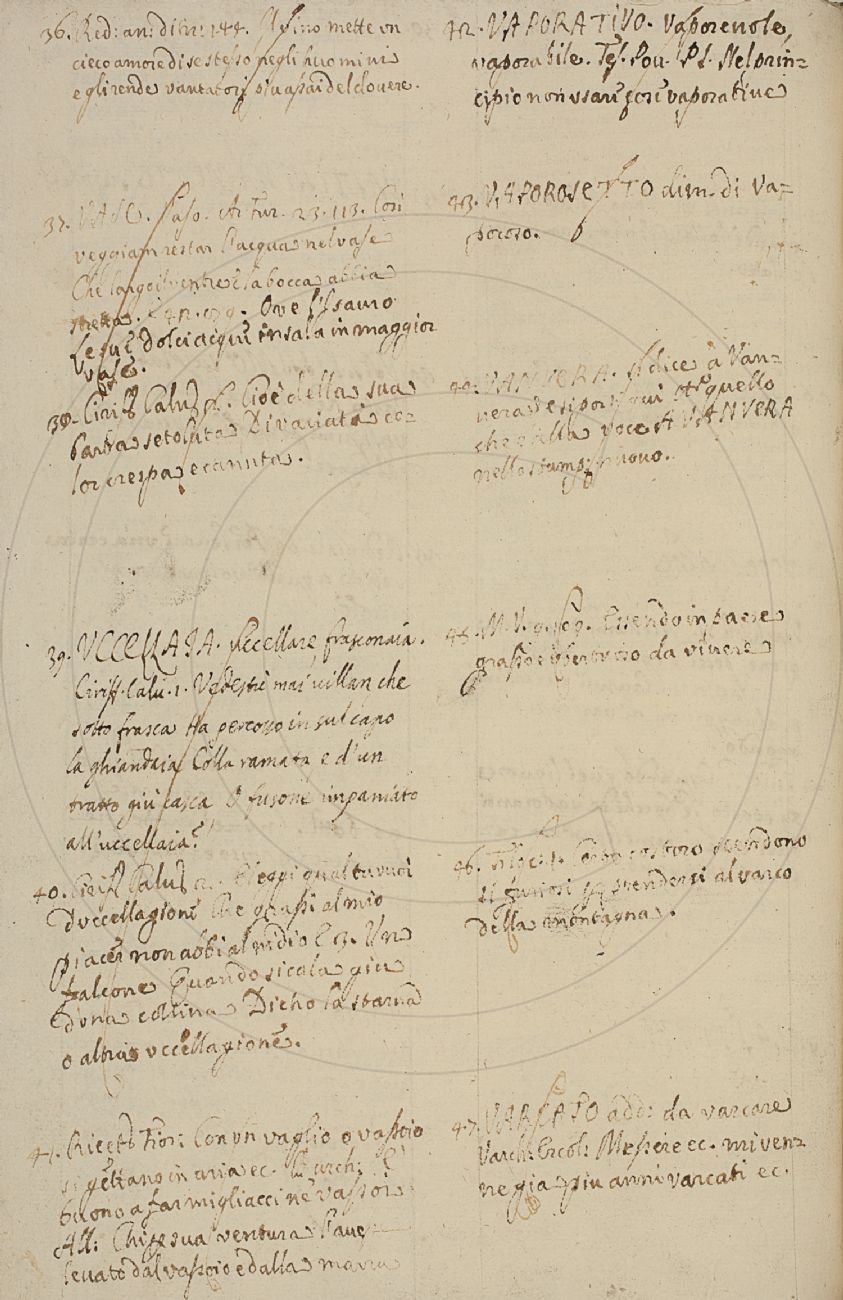 36. Red: an: ditir: 144. Il vino mette un
cieco amore di se stesso negli huomini
e gli rende vantatori più assai del dovere.
37. VASO. Ar. Fur. 23. 113. Così
veggiam restar l'acqua nel vase
Che largo il ventre e la bocca abbia
stretta. E 42. Ove
Le sue dolci acque insala in maggior
vase.
38. Ciriff. Calv. Cioè della sua
barba setoluta Di variato co=
lor crespa e canuta.
39. UCCELLAIA. Uccellare, frasconaia.
Ciriff. Calv. 1. Vedestù mai villan che
sotto frasca Ha percosso in sul capo
la ghiandaia Colla ramata e d'un
tratto giù casca O fusone impaniato
all'uccellaia?
40. Ciriff. Calv. 2. Eleggi qual tu vuoi
d'uccellagione Che quasi al mio
piacer non abbi al nidio E 3. Un
falcone Quando si cala giu
d'una collina Dicho la starna
o altra uccellagione.
41. Ricett. Fior: Con un vaglio o vassoio
si gettano in aria ec. Burch:
buono a far migliacci nè vassoi
All: Chi se sua ventura l'ave
levato dal vassoio e dalla
42. VAPORATIVO. Vaporevole,
vaporabile. Tes. Pov. P. S. Nel prin=
cipio non usare cose vaporative
43. VAPOROSETTO dim. di Va=
poroso.
44. VANVERA. si dice a Van=
vera e si porti qui quello
che è alla voce A VANVERA
nello stampato nuovo.
45. M. V. 9. Essendo in paese
grasso e ubertuoso da vivere
46. costoro scendono
sì furiosi per prendersi al varco
della montagna.
47. VARCATO add: da varcare
Varch. Ercol: Messere ec. mi ven=
ne gia più anni varcati ec.